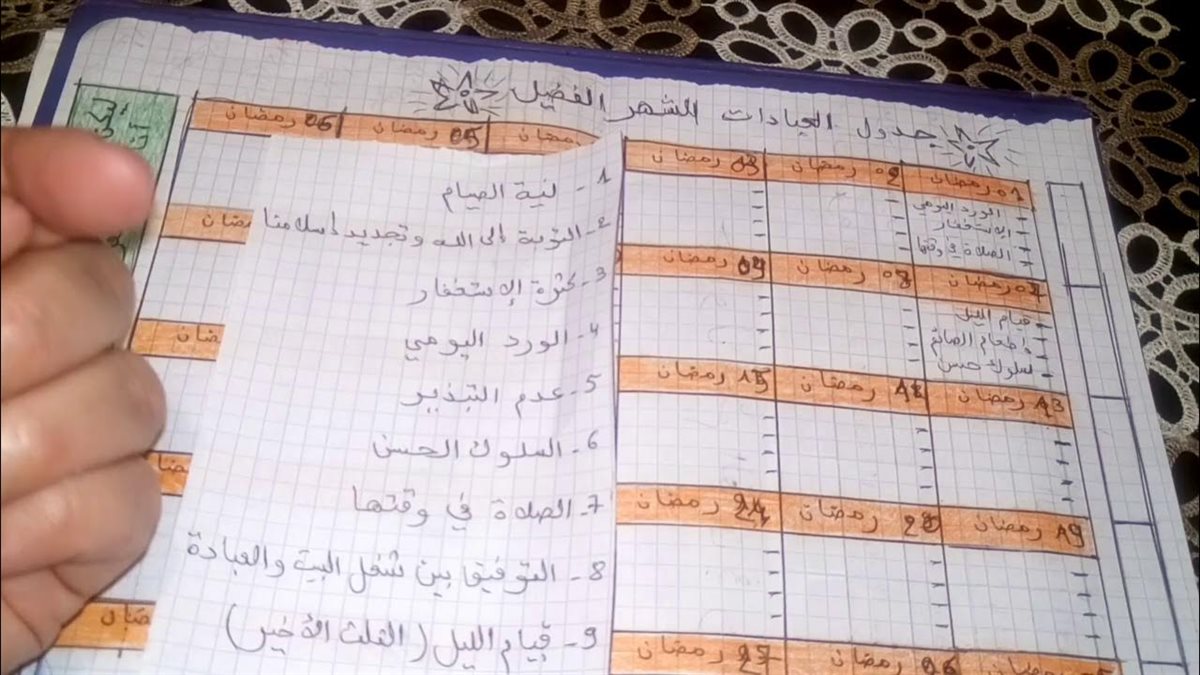 جدول العبادات للشهر الفضيل
01 رمضان
02 رمضان
03 رمضان
رمضان
05 رمضان
06 رمضان
- الورد اليومي
- الإستغفار
- الصلاة في وقتها
رمضان
08 رمضان
09 رمضان
- قيام الليل
- إطعام الصائم
- سلوك حسن
13 رمضان
رمضان
15 رمضان
19 رمضان
20 رمضان
21 رمضان
رمضان
26 رمضان
27 رمضان
1 - نية الصيام
2 - التوبة إلى الله وتجديد إسلامنا
3 - كثرة الإستغفار
4 - الورد اليومي
5 - عدم التبذير
6 - السلوك الحسن
7 - الصلاة في وقتها
8 - التوفيق بين شغل البيت والعبادة
9 - قيام الليل (الثلث الأخير)